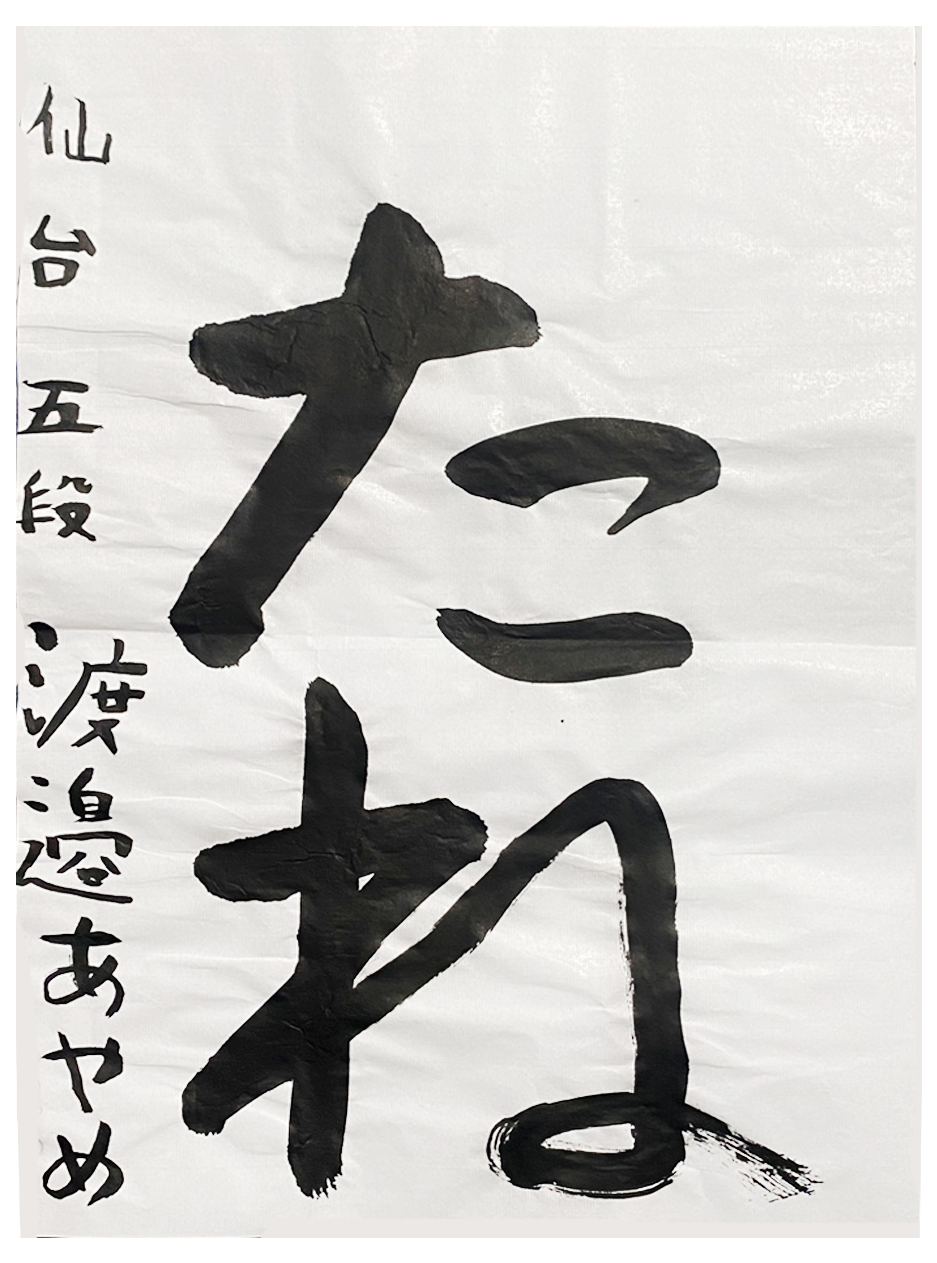 たね
仙台 五段 渡邉あやめ